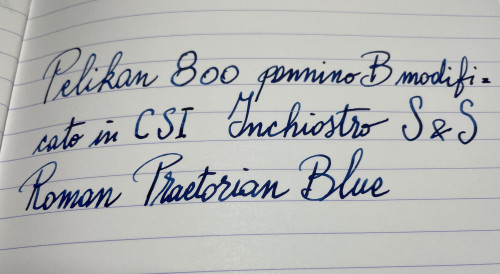 Pelikan 800 pennino B modifi=
cato in CSI Inchiostro S&S
Roman Praetorian Blue